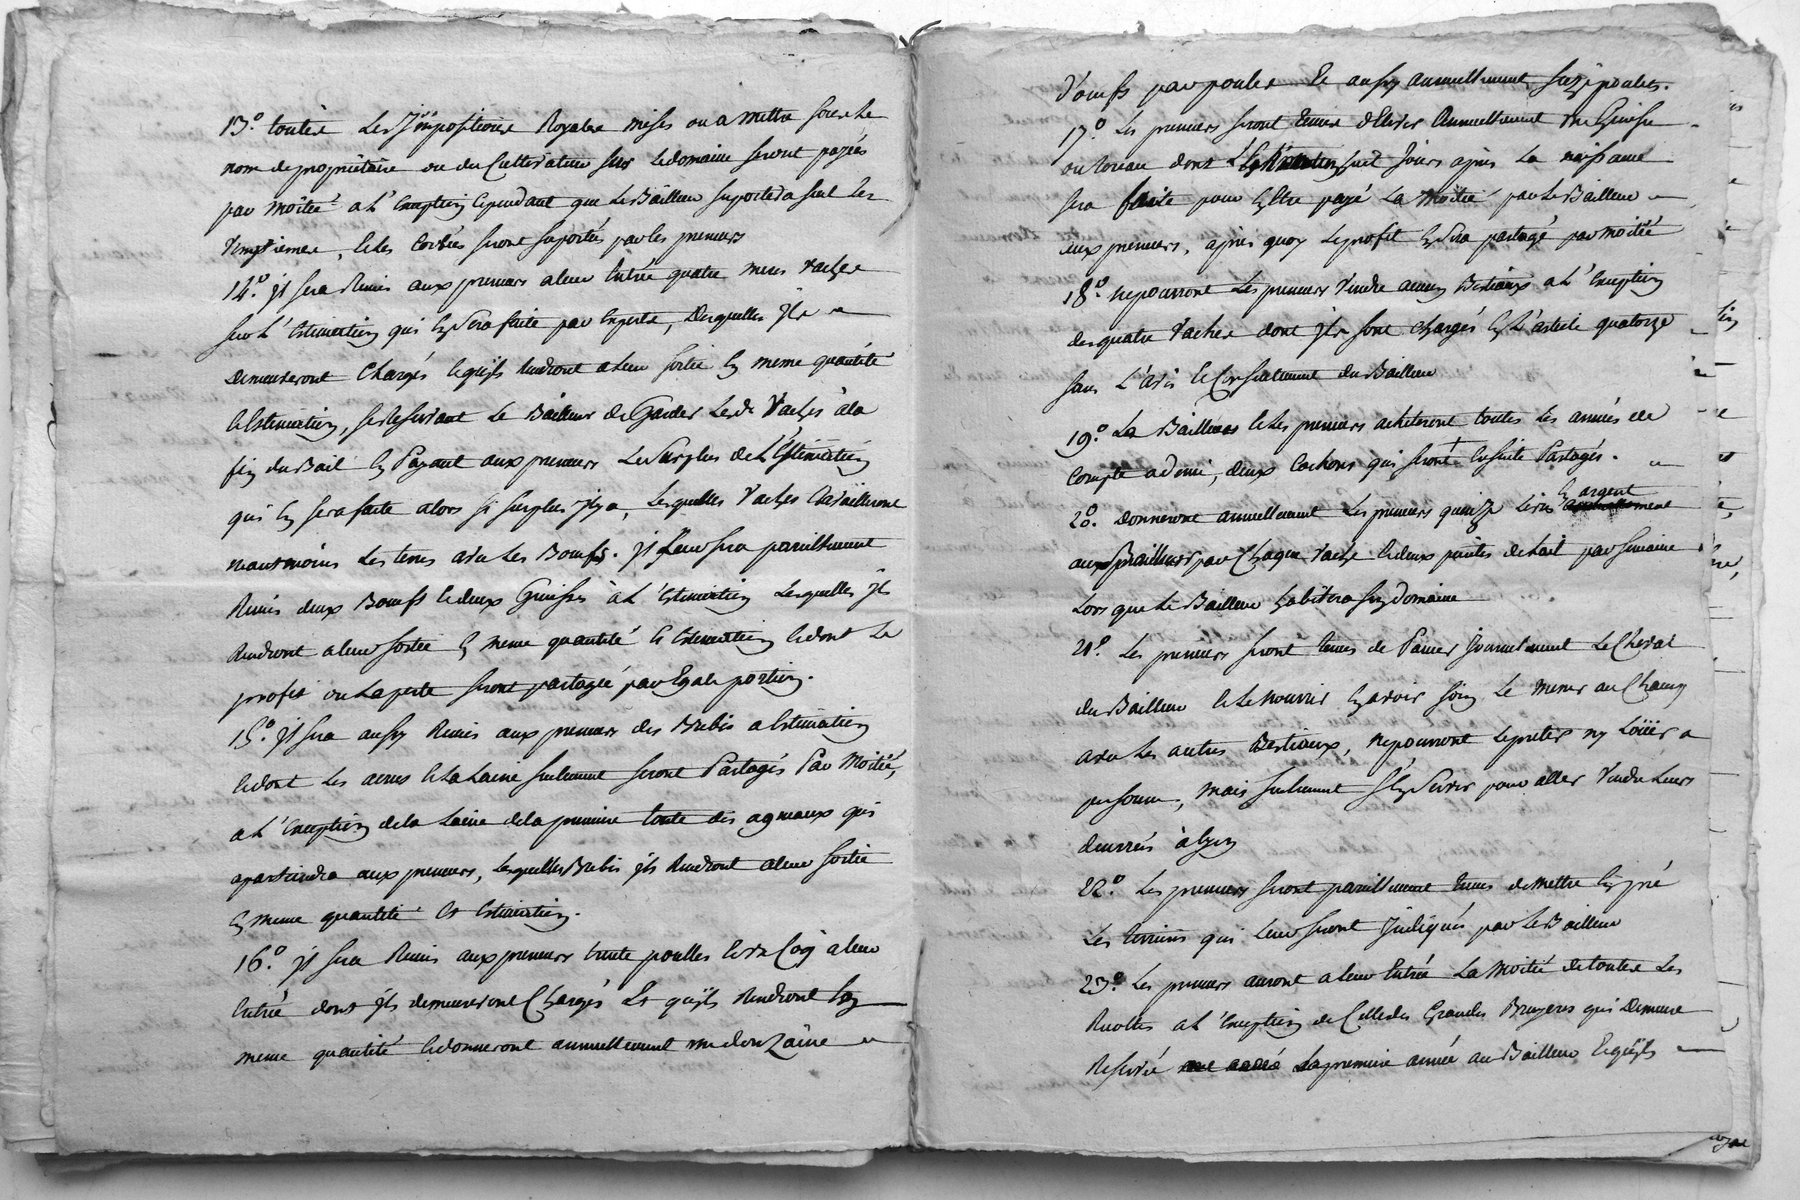 13.° toutes Les Jmpositions Royales mises ou a mettre sous Le
nom de propriétaire ou du Cultivateur sur Le domaine seront payées
par moitié a L'Exception Cependant que Le Bailleur suportera seul les
Vingtiemes, Et Les Corvées seront suportées par les preneurs
14.° jl sera Remis aux preneurs a leur Entrée quatre meres vaches
sur L'Estimation qui En Sera faite par Experts, Desquelles Jls
demeureront Chargés Et quils Rendront a leur sortie En meme quantité
Et Estimation, se Reservant Le Bailleur de Garder Lesd. Vaches a la
fin du Bail En Payant aux preneurs Le Surplus de L'Estimation
qui En sera faite alors si surplus jl y a, Lesquelles Vaches travailleront
neantmoins Les terres avec Les Boeufs. jl Leur sera pareillement
Remis deux Boeufs Et deux Genisses à L'Estimation Lesquelles jls
Rendront a leur sortie En meme quantité Et Estimation Et dont Le
profit ou La perte seront partagés par Egale portion.
15.° jl sera aussy Remis aux preneurs des Brebis a Estimation
Et dont Les acrus Et La Laine seulement seront Partagés Par Moitié,
a L'Exception de la Laine de la premiere tonte des agneaux qui
apartiendra aux preneurs, Lesquelles Brebis jls Rendront a leur sortie
En meme quantité Et Estimation.
16.° jl sera Remis aux preneurs trente poulles Et un Coq a leur
Entrée dont jls demeureront Chargés Et quils Rendront En
meme quantité Et donneront annuellement une douzaine
d'oeufs par poules Et aussy annuellement seize poulets.
17.° Les preneurs seront tenus d'Elever Annuellement une Genisse
ou toreau dont L'Estimation huit Jours apres La naissance
sera faite pour En Etre payé La Moitié par Le Bailleur
aux preneurs, après quoy Le profit En Sera partagé par moitié
18.° ne pourront Les preneurs Vendre aucuns Bestiaux a L'Exception
des quatre Vaches dont jls sont chargés En L'article quatorze
sans L'avis Et Consentement du Bailleur
19.° Le Bailleur Et Les preneurs acheteront toutes Les années de
Compte a demi, deux Cochons qui seront Ensuite Partagés.
20.° Donneront annuellement Les preneurs quinze Livres En argent
aux Bailleurs par Chaque Vache Et deux pintes de Lait par semaine
Lors que Le Bailleur habitera son Domaine
21.° Les preneurs seront tenus de Panser Journellement Le Cheval
du Bailleur Et Le Nourrir En avoir soin Le mener au Champ
avec Les autres Bestiaux, ne pourront Le preter ny Loüer a
personne, mais seulement S'En Servir pour aller Vendre Leurs
denrées à Lyon
22.° Les preneurs seront pareillement tenus de mettre En pré
Les terrains qui Leur seront Jndiqués par Le Bailleur
23.° Les preneurs auront a leur Entrée La Moitié de toutes Les
Recoltes a L'Exception de Celle des Grandes Bruyeres qui Demeure
Reservée La premiere année au Bailleur Et quils